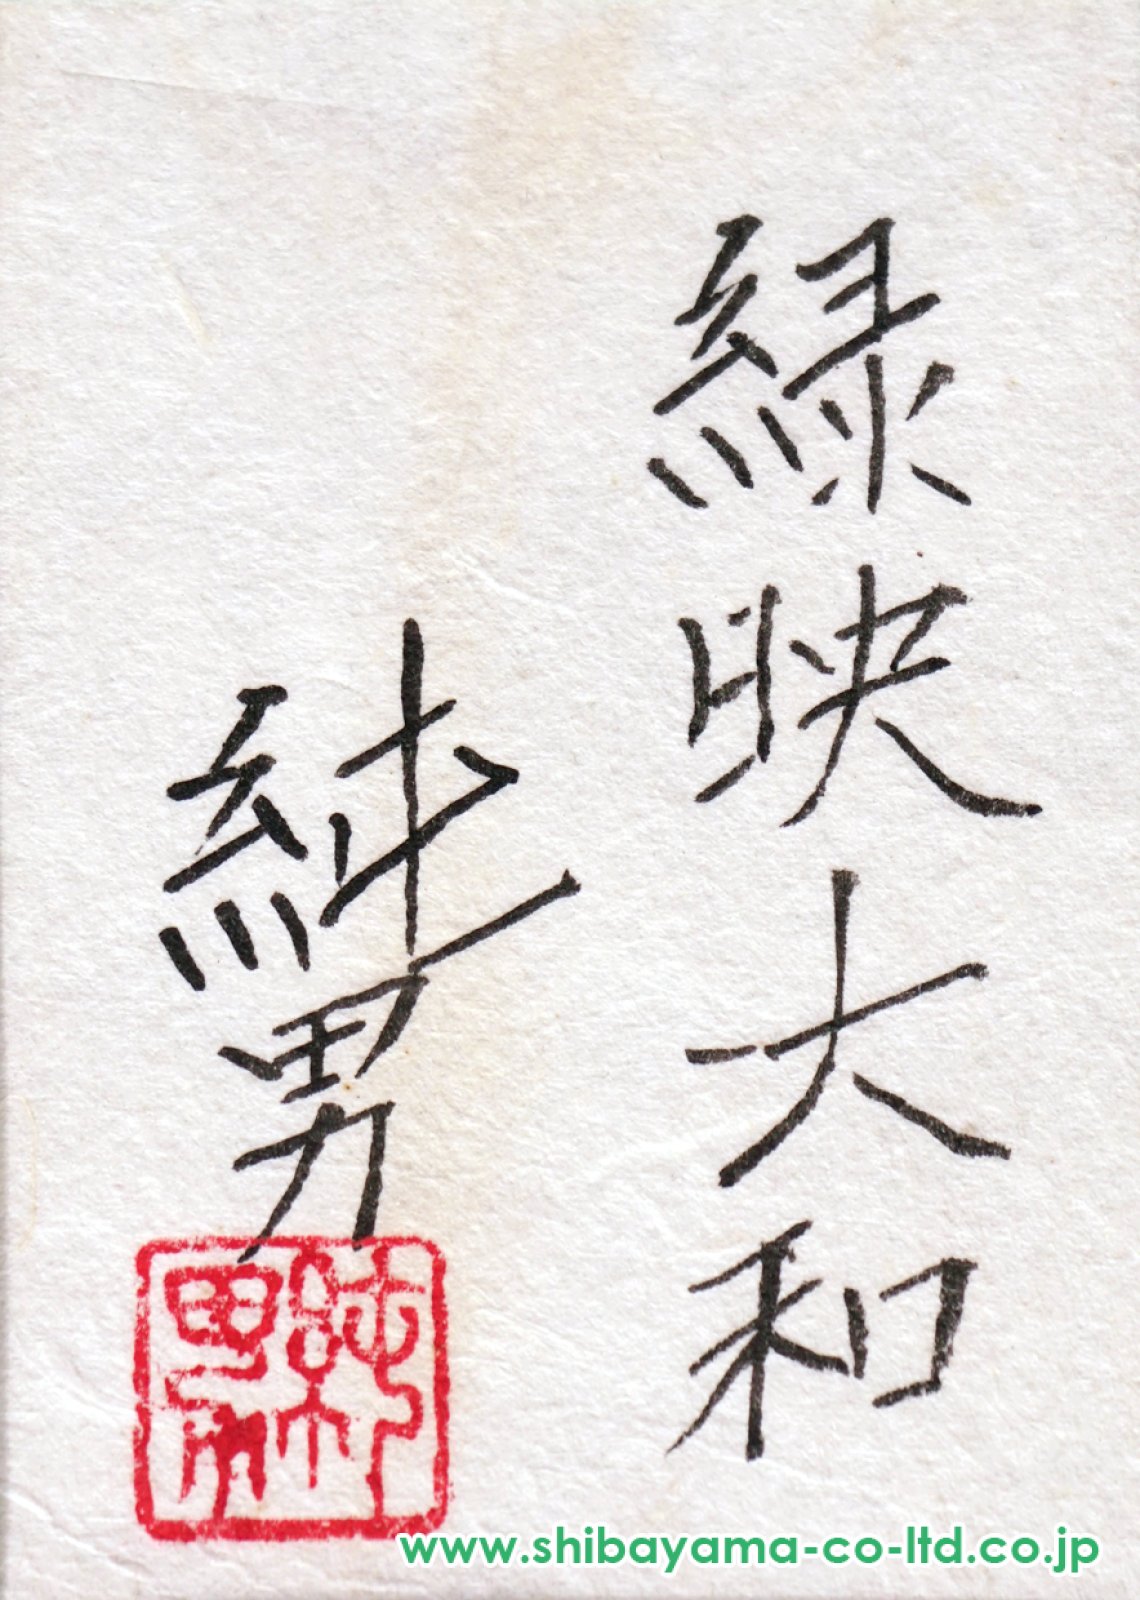 緑映大和
純男
純男
www.shibayama-co-ltd.co.jp